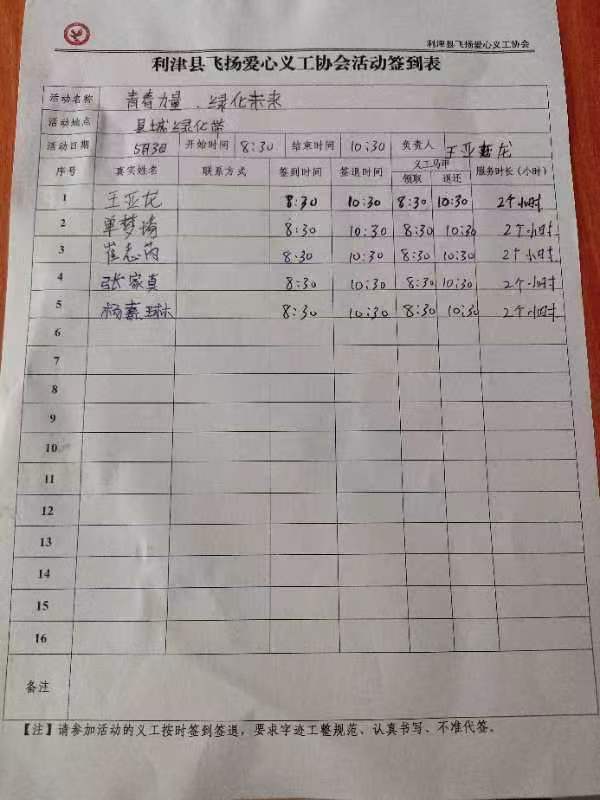 利津县飞扬爱心义工协会
利津县飞扬爱心义工协会活动签到表
活动名称 青春力量、绿化未来
活动地点 县城绿化带
活动日期 5月3日 开始时间 8:30 结束时间 10:30 负责人 王亚龙
序号 真实姓名 联系方式 签到时间 签退时间 义工马甲 领取 退还 服务时长(小时)
1 王亚龙 8:30 10:30 8:30 10:30 2个小时
2 单梦琦 8:30 10:30 8:30 10:30 2个小时
3 崔志芮 8:30 10:30 8:30 10:30 2个小时
4 张家真 8:30 10:30 8:30 10:30 2个小时
5 杨素琳 8:30 10:30 8:30 10:30 2个小时
6
7
8
9
10
11
12
13
14
15
16
备注
【注】请参加活动的义工按时签到签退，要求字迹工整规范、认真书写、不准代签。